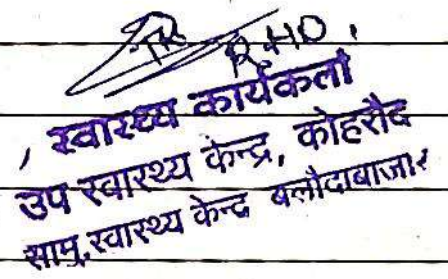 R.H.O.
स्वास्थ्य कार्यकर्ता
उप स्वास्थ्य केन्द्र, कोहरौद
सामु. स्वास्थ्य केन्द्र बलौदाबाजार